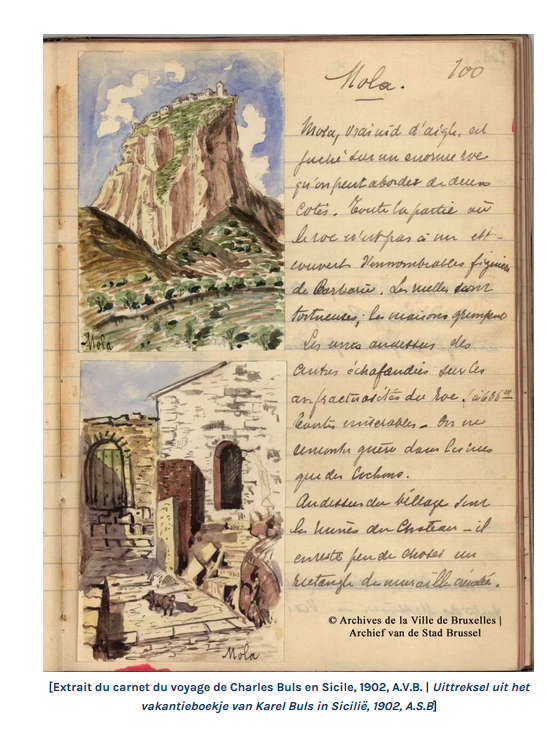 100
Mola.
Mola, vrai nid d'aigle, est
juché sur un énorme roc
qu'on peut aborder de deux
cotés. Toute la partie où
le roc n'est pas à nu est
couvert d'innombrables figuiers
de Barbarie. Les ruelles sont
tortueuses; les maisons grimpent
les unes audessus des
autres échafaudées sur les
anfractuosités du roc
toutes misérables - On ne
rencontre guère dans les rues
que des cochons.
Audessus du village sont
les ruines du Chateau - il
en reste peu de choses un
rectangle de muraille crénelée.
Mola
Mola
© Archives de la Ville de Bruxelles |
Archief van de Stad Brussel
[Extrait du carnet du voyage de Charles Buls en Sicile, 1902, A.V.B. | Uittreksel uit het
vakantieboekje van Karel Buls in Sicilië, 1902, A.S.B]